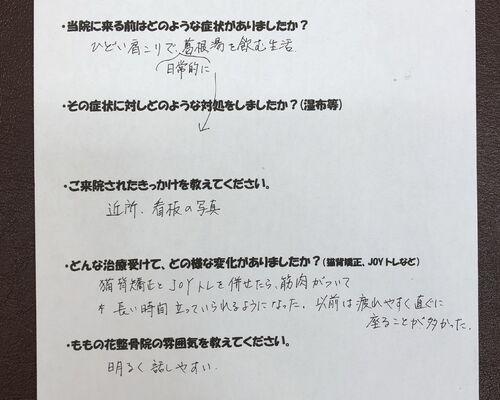 ・当院に来る前はどのような症状がありましたか？
ひどい肩こりで、葛根湯を飲む生活.
日常的に
・その症状に対しどのような対処をしましたか？(湿布等)
・ご来院されたきっかけを教えてください。
近所、看板の写真
・どんな治療受けて、どの様な変化がありましたか？(猫背矯正、JOYトレなど)
猫背矯正とJOYトレを併せたら、筋肉がついて
長い時間立っていられるようになった. 以前は疲れやすく直ぐに
座ることが多かった.
・ももの花整骨院の雰囲気を教えてください。
明るく話しやすい.